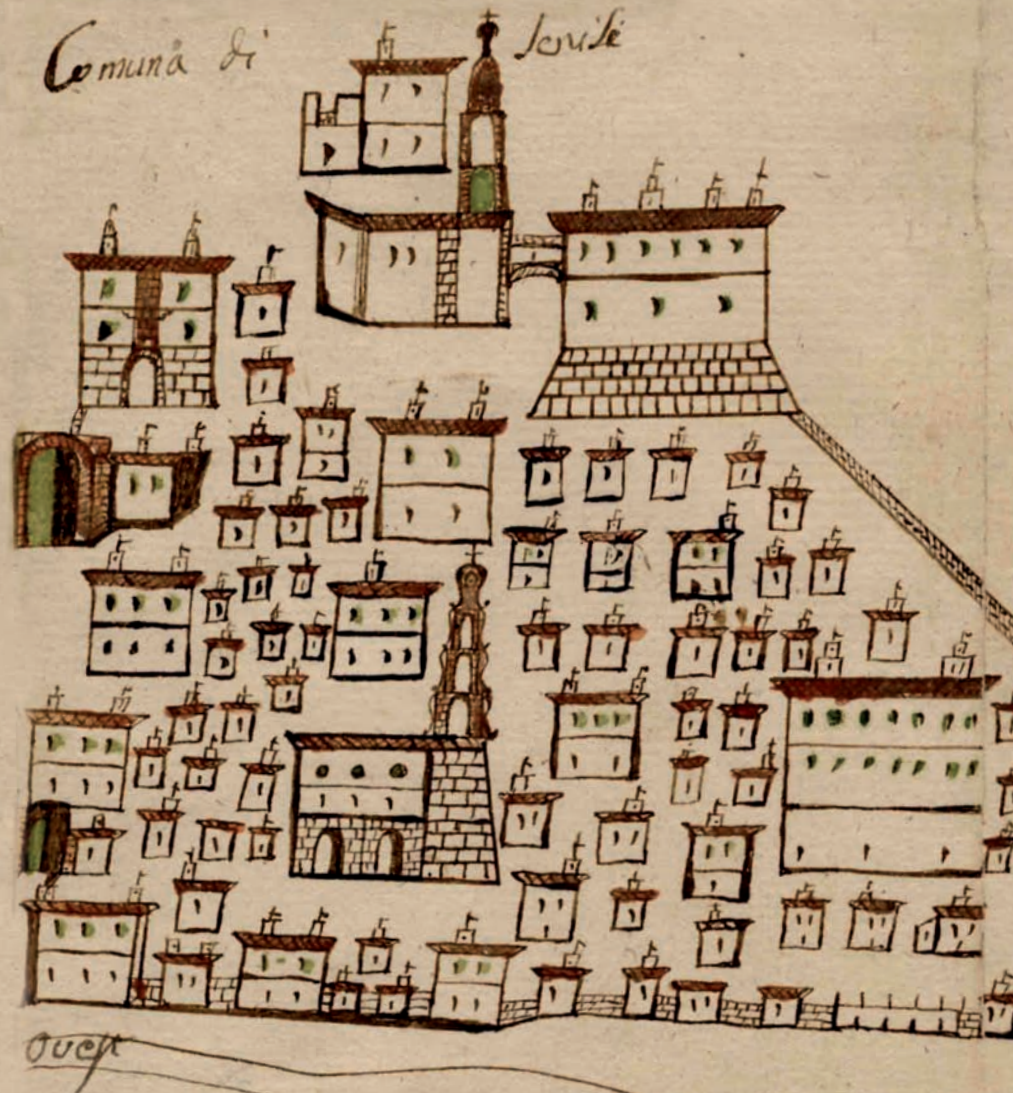 Comuna di Senise
Ovest